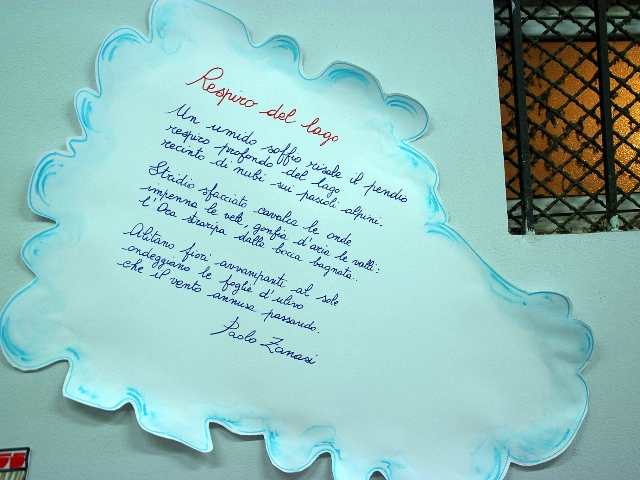 Respiro del lago
Un umido soffio risale il pendio
respiro profondo del lago
recinto di nubi sui pascoli alpini.
Stridio sfacciato cavalca le onde
impenna le vele, gonfia d'aria le valli:
l'Ora straripa dalla bocca bagnata..
Alitano fiori avvampanti al sole
ondeggiano le foglie d'ulivo
che il vento annusa passando.
Paolo Zanasi